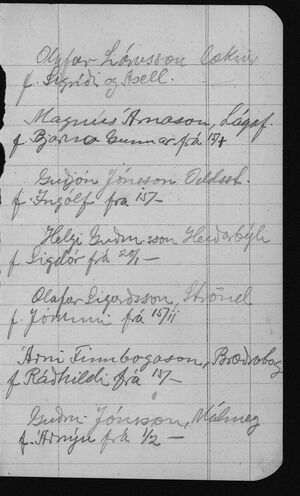 Olafur Lárusson Læknir
f. Sigríði og Axell.
Magnús Árnason, Lágaf.
f Bjarna Gunnar frá 15/
Guðjón Jónsson Oddsst.
f. Ingólf frá 15/–
Helgi Guðm.sson Heiðarbýli
f Sigdór frá 20/1 –
Olafur Sigurdsson, Strönd
f. Jórunni frá 15/11
Árni Finnbogason, Bræðraborg
f Ráðhildi frá 15/–
Guðm. Jónsson, Málmey
f. Árnýu frá 1/2 –